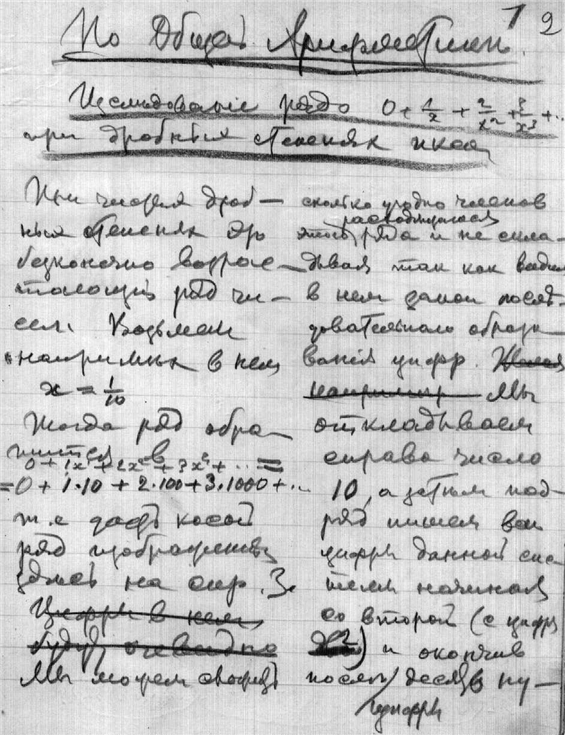 1 2
По Общей Арифметике.
Исследование ряда 0 + 1/x + 2/x² + 3/x³ + ..
при дробных степенях икса
При числах дроб-
ных степенях это
безконечно возрас-
тающий ряд чи-
сел. Возьмем
например в нем
x = 1/10
Тогда ряд обра-
тится в
0 + 1x + 2x² + 3x³ + .. =
= 0 + 1·10 + 2·100 + 3·1000 + ..
т.е. даст косой
ряд изображенный
здесь на стр. 3.
Цифры в нем
будут очевидно
Мы можем сложить
сколько угодно членов
расходящегося
этого ряда и не скла-
дывая так как видим
в нем закон после-
довательного образо-
вания цифр.
например Мы
откладываем
справа число
10, а затем под-
ряд пишем все
цифры данной сис-
темы начиная
со второй (с цифры
2) и окончив
после десяв ну-
цифры